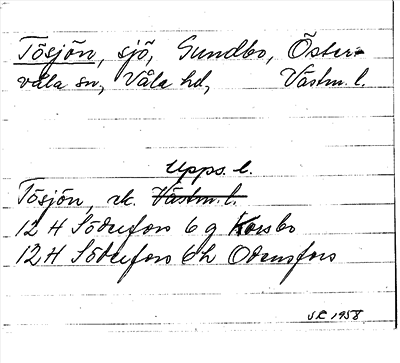 Tösjön, sjö, Gundbo, Öster-
våla sn, Våla hd, Västm. l.
Upps. l.
Tösjön, rk. Västm. l.
12 H Söderfors 6 g Korsbo
12 H Söderfors 6 h Odensfors
SR 1958